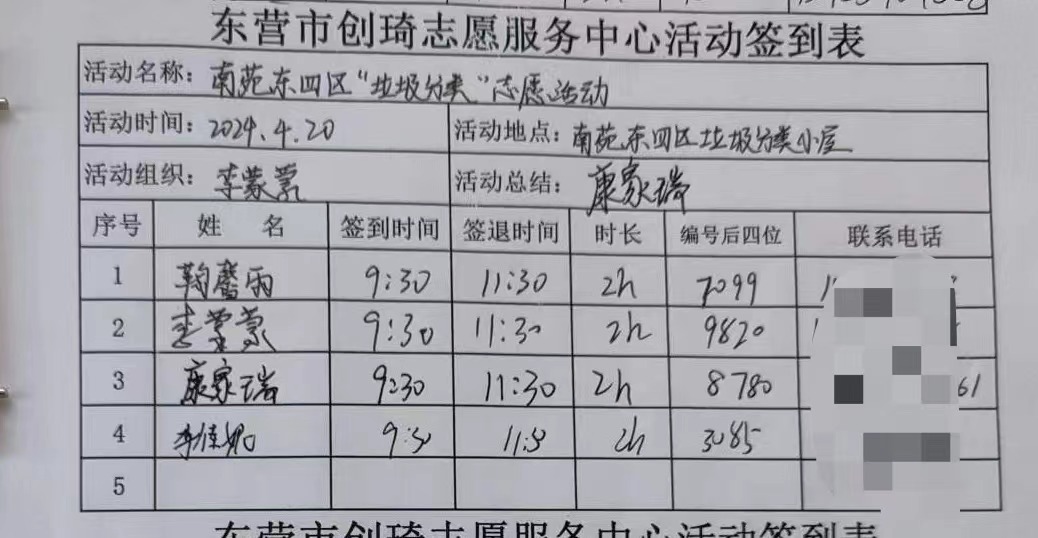 东营市创琦志愿服务中心活动签到表
活动名称：南苑东四区“垃圾分类”志愿活动
活动时间：2024.4.20 活动地点：南苑东四区垃圾分类小屋
活动组织：李蒙蒙 活动总结：康家瑞
序号 姓 名 签到时间 签退时间 时长 编号后四位 联系电话
1 鞠馨雨 9:30 11:30 2h 7099
2 李蒙蒙 9:30 11:30 2h 9820
3 康家瑞 9:30 11:30 2h 8780 61
4 9:30 11:30 2h 3085
5
东营市创琦志愿服务中心活动签到表